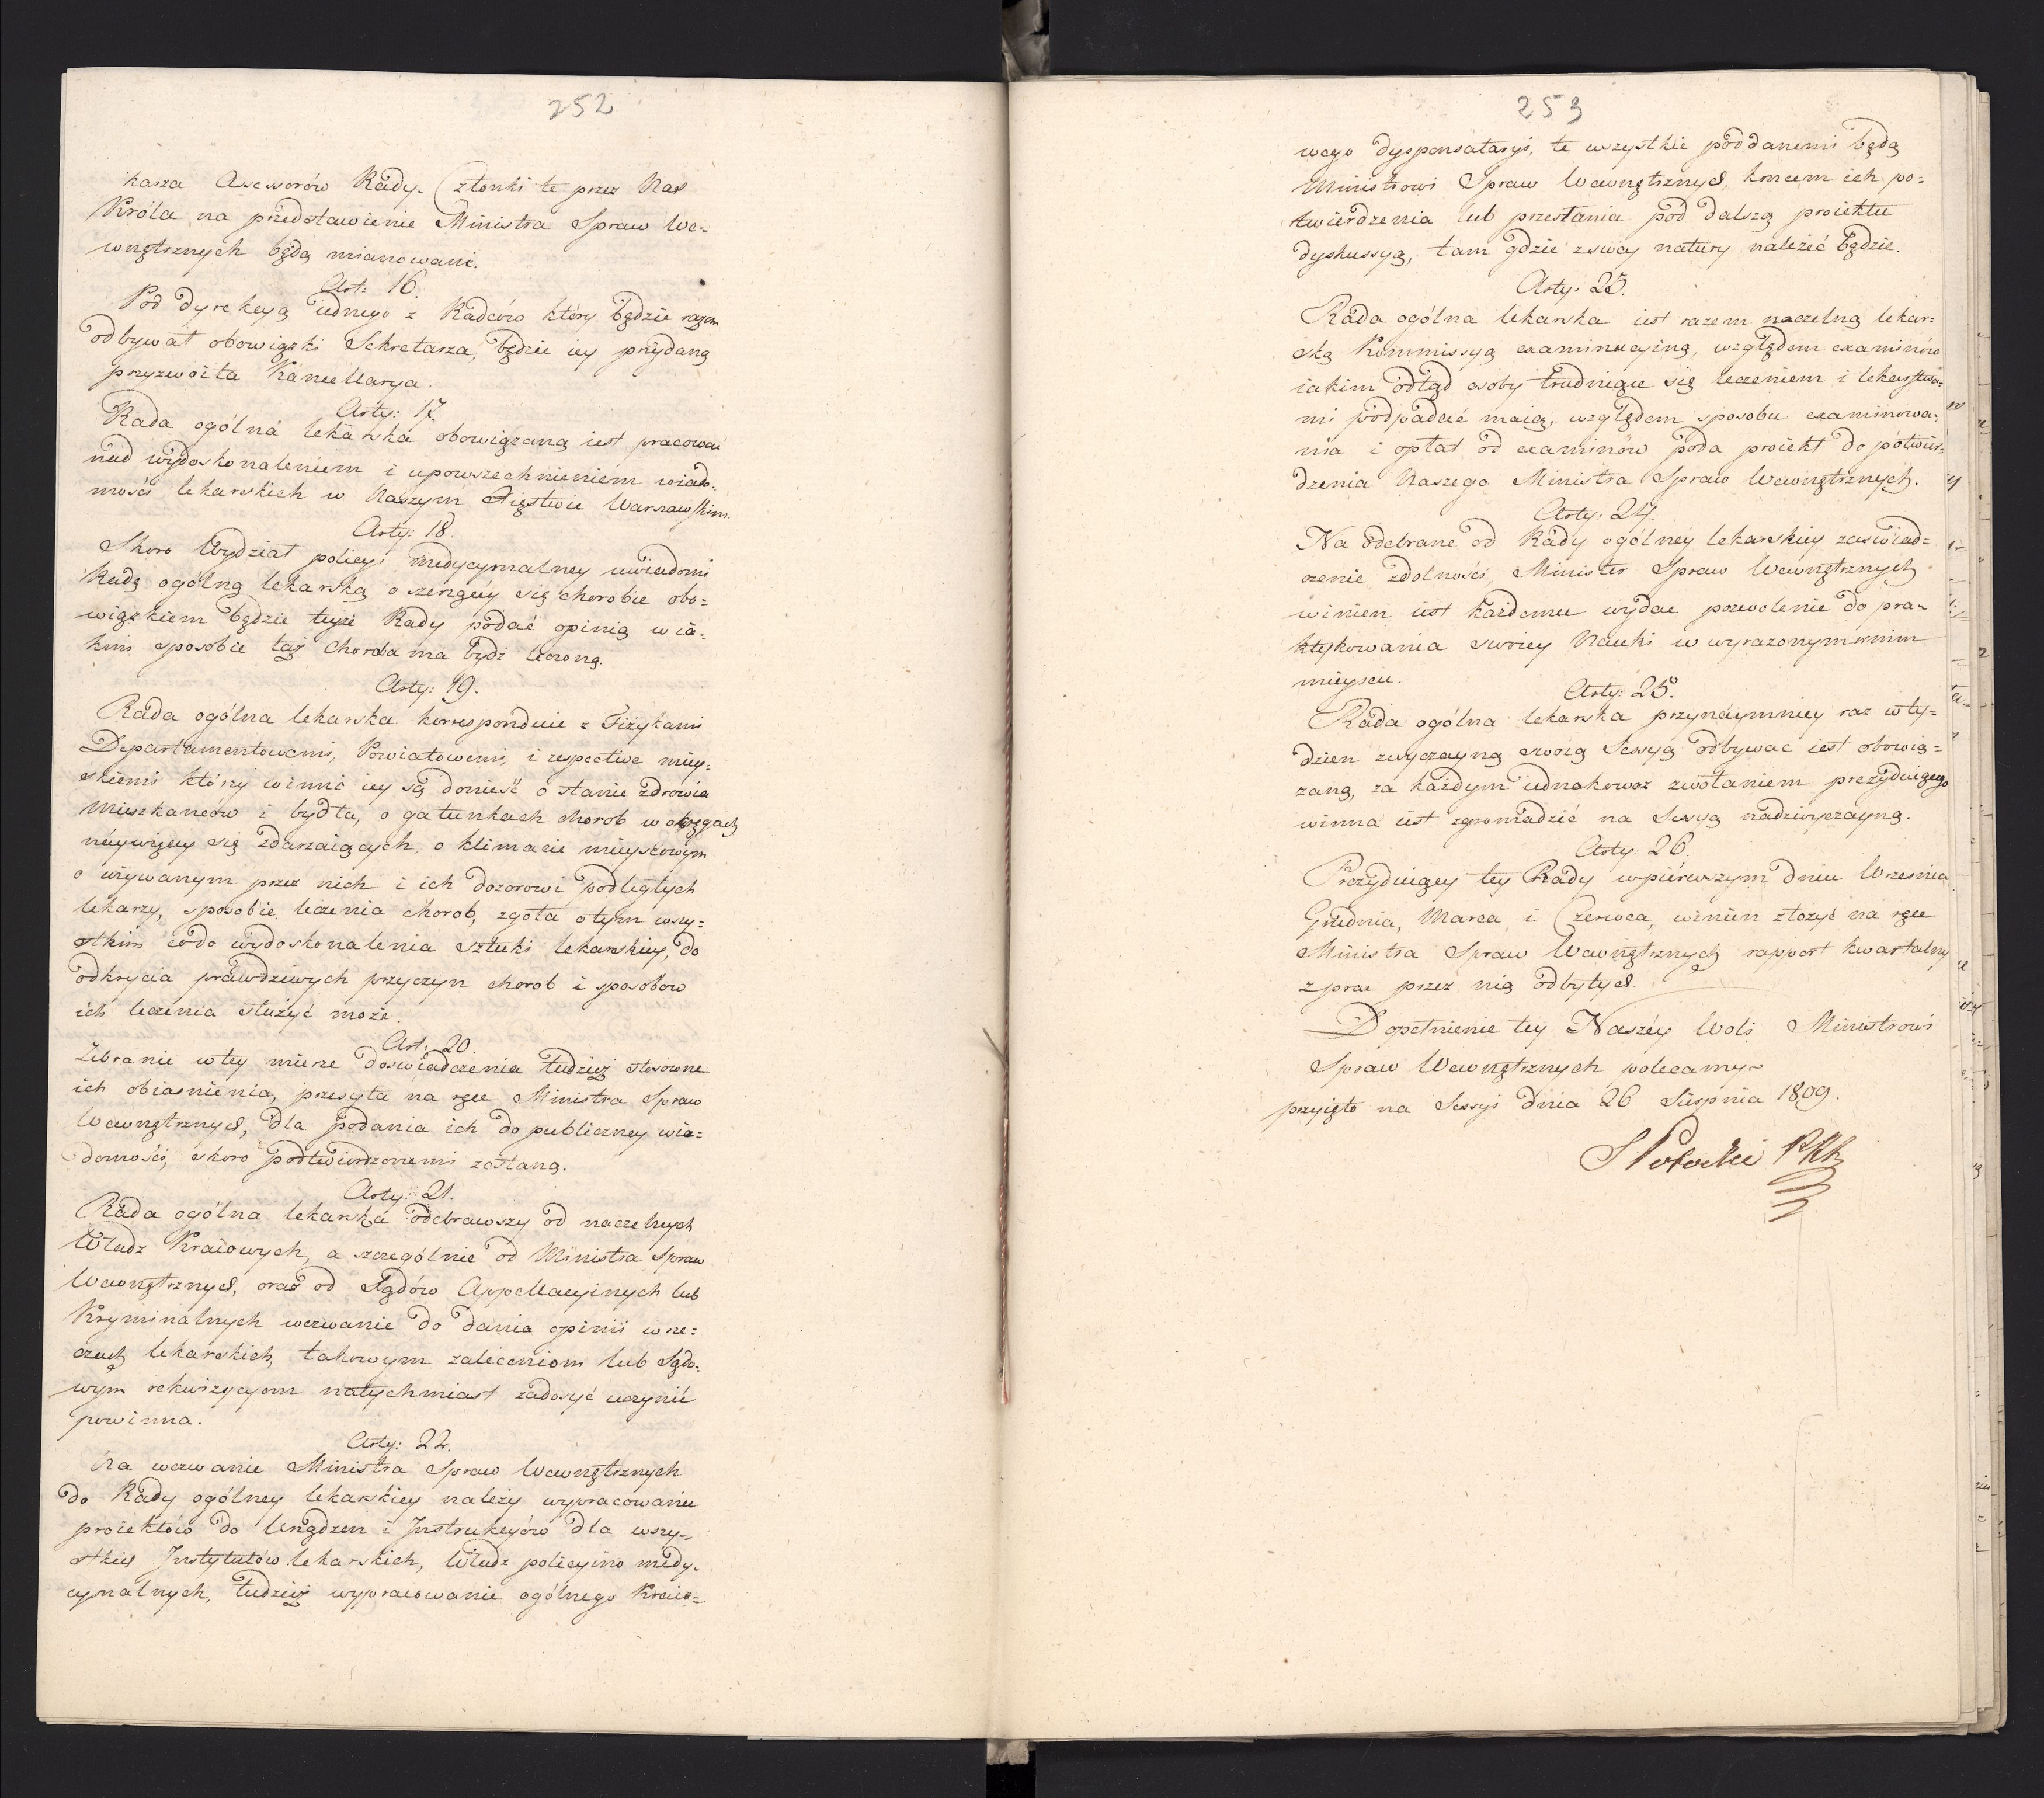 252
karza Asessorów Rady. Członki te przez Nas
Króla na przedstawienie Ministra Spraw We=
wnętrznych będą mianowani.
Art: 16.
Pod dyrekcyą iednego z Radców który będzie razem
odbywał obowiązki Sekretarza, będzie iey przydaną
przyzwoita Kancellarya.
Arty: 17.
Rada ogólna lekarska obowiązaną iest pracować
nad wydoskonaleniem i upowszechnieniem wiado-
mości lekarskich w Naszym Xięstwie Warszawskim
Arty: 18.
Skoro Wydział policyi medycynalney uwiadomi
Radę ogólną lekarską o szerzącéy się chorobie obo=
wiązkiem będzie teyże Rady podać opinią w ia=
kim sposobie taż choroba ma bydź leczoną.
Arty: 19.
Rada ogólna lekarska korresponduie z Fizykami
Departamentowemi, Powiatowemi, i respective miey=
skiemi którzy winni iey są donieść o stanie zdrowia
Mieszkańców i bydła, o gatunkach chorob w okręgach
náywięcey się zdarzaiących, o klimacie mieyscowym
o używanym przez nich i ich dozorowi podległych
lekarzy, sposobie leczenia chorob, zgoła o tym wszy=
stkim co do wydoskonalenia sztuki lekarskiey, do
odkrycia prawdziwych przyczyn chorob i sposobow
ich leczenia służyć może.
Art: 20.
Zebranie w tey mierze doswiadczenia tudzież stosowne
ich obiasnienia, przesyła na ręce Ministra Spraw
Wewnętrznych, dla podania ich do publiczney wia=
domości, skoro potwierdzonemi zostaną.
Arty: 21.
Rada ogólna lekarska odebrawszy od naczelnych
Władz Kraiowych, a szczególnie od Ministra Spraw
Wewnętrznych, oraz od Sądów Appellacyinych lub
Kryminalnych wezwanie do dania opinii w rze=
czach lekarskich, takowym zaleceniom lub Sądo-
wym rekwizycyom natychmiast zadosyć uczynić
powinna.
Arty: 22.
Na wezwanie Ministra Spraw Wewnętrznych
do Rady ogólney lekarskiey należy wypracowanie
proiektów do Urządzeń i Instrukcyów dla wszy-
stkich Instytutów lekarskich, Władz policyino medy-
cynalnych, tudzież wypracowanie ogólnego Kraio=
253
wego dyspensataryi, te wszystkie poddanemi będą
Ministrowi Spraw Wewnętrznych, koncem ich po=
twierdzenia lub przesłania pod dalszą proiektu
dyskussyą, tam gdzie z swéy natury należeć będzie.
Arty: 23.
Rada ogólna lekarska iest razem naczelną lekar=
ską Kommissyą examinacyiną, względem examinów
iakim odtąd osoby trudniące się leczeniem i lekarstwa-
mi podpadać maią, względem sposobu examinowa-
nia i opłat od examinów poda proiekt do potwier-
dzenia Naszego Ministra Spraw Wewnętrznych.
Arty: 24.
Na odebrane od Rady ogólney lekarskiey zaswiad=
czenie zdolności, Minister Spraw Wewnętrznych
winien iest każdemu wydać pozwolenie do pra-
ktykowania swoiey Nauki w wyrażonym w nim
mieyscu.
Arty: 25.
Rada ogólna lekarska przynáymniey raz w ty=
dzien zwyczayną swoią Sessyą odbywać iest obowią=
zaną, za każdym iednakowoż zwołaniem prezyduiącego
winna iest zgromadzić na Sessyą nadzwyczayną.
Arty: 26.
Prezyduiący tey Rady w pierwszym dniu Wrzesnia
Grudnia, Marca i Czerwca, winien złożyć na ręce
Ministra Spraw Wewnętrznych rapport kwartalny
z prac przez nią odbytych.
Dopełnienie tey Naszéy Woli Ministrowi
Spraw Wewnętrznych polecamy.
przyięto na Sessyi dnia 26 Sierpnia 1809.
S Potocki